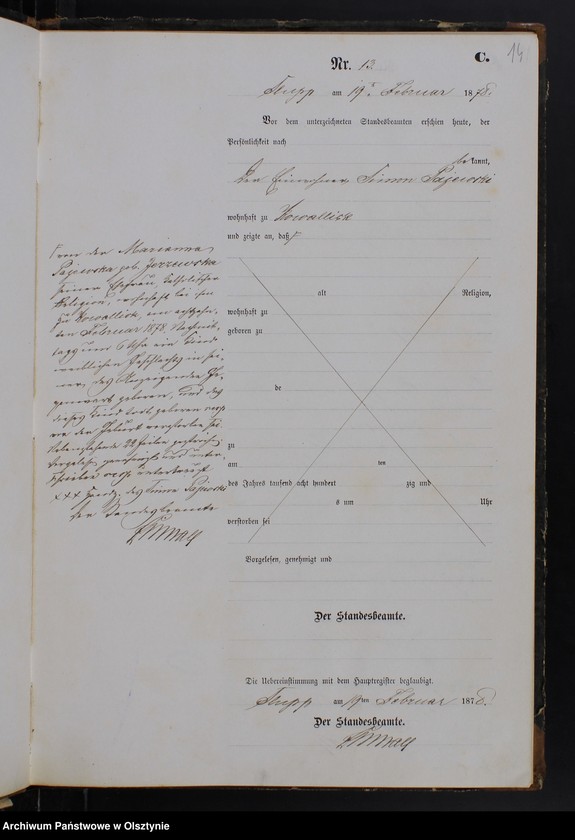 14
C.
Nr. 13
Stupp am 19ten Februar 1878.
Vor dem unterzeichneten Standesbeamten erschien heute, der
Persönlichkeit nach
bekannt,
Der Einwohner Simon Pajewski
wohnhaft zu Kowallick
und zeigte an, daß
von der Marianna
Pajewska geb. Jerzewska
seiner Ehefrau, katholischer
Religion, wohnhaft bei ihm
zu Kowallick, am achtzehn-
ten Februar 1878 Nachmit-
tags um 6 Uhr ein Kind
weiblichen Geschlechts in sei-
ner, des Anzeigenden Ge-
genwart geboren, und daß
dieses Kind todt geboren
der Geburt verstorben sei.
Nebenstehende 22 Zeilen gestrichen
Vorgelesen, genehmigt und unter-
+++ Handz. des Simon Pajewski
Der Standesbeamte
alt Religion,
wohnhaft zu
geboren zu
de
zu
am ten
des Jahres tausend acht hundert zig und
s um Uhr
verstorben sei
Vorgelesen, genehmigt und
Der Standesbeamte.
Die Uebereinstimmung mit dem Hauptregister beglaubigt.
Stupp am 19ten Februar 1878.
Der Standesbeamte.
Archiwum Państwowe w Olsztynie